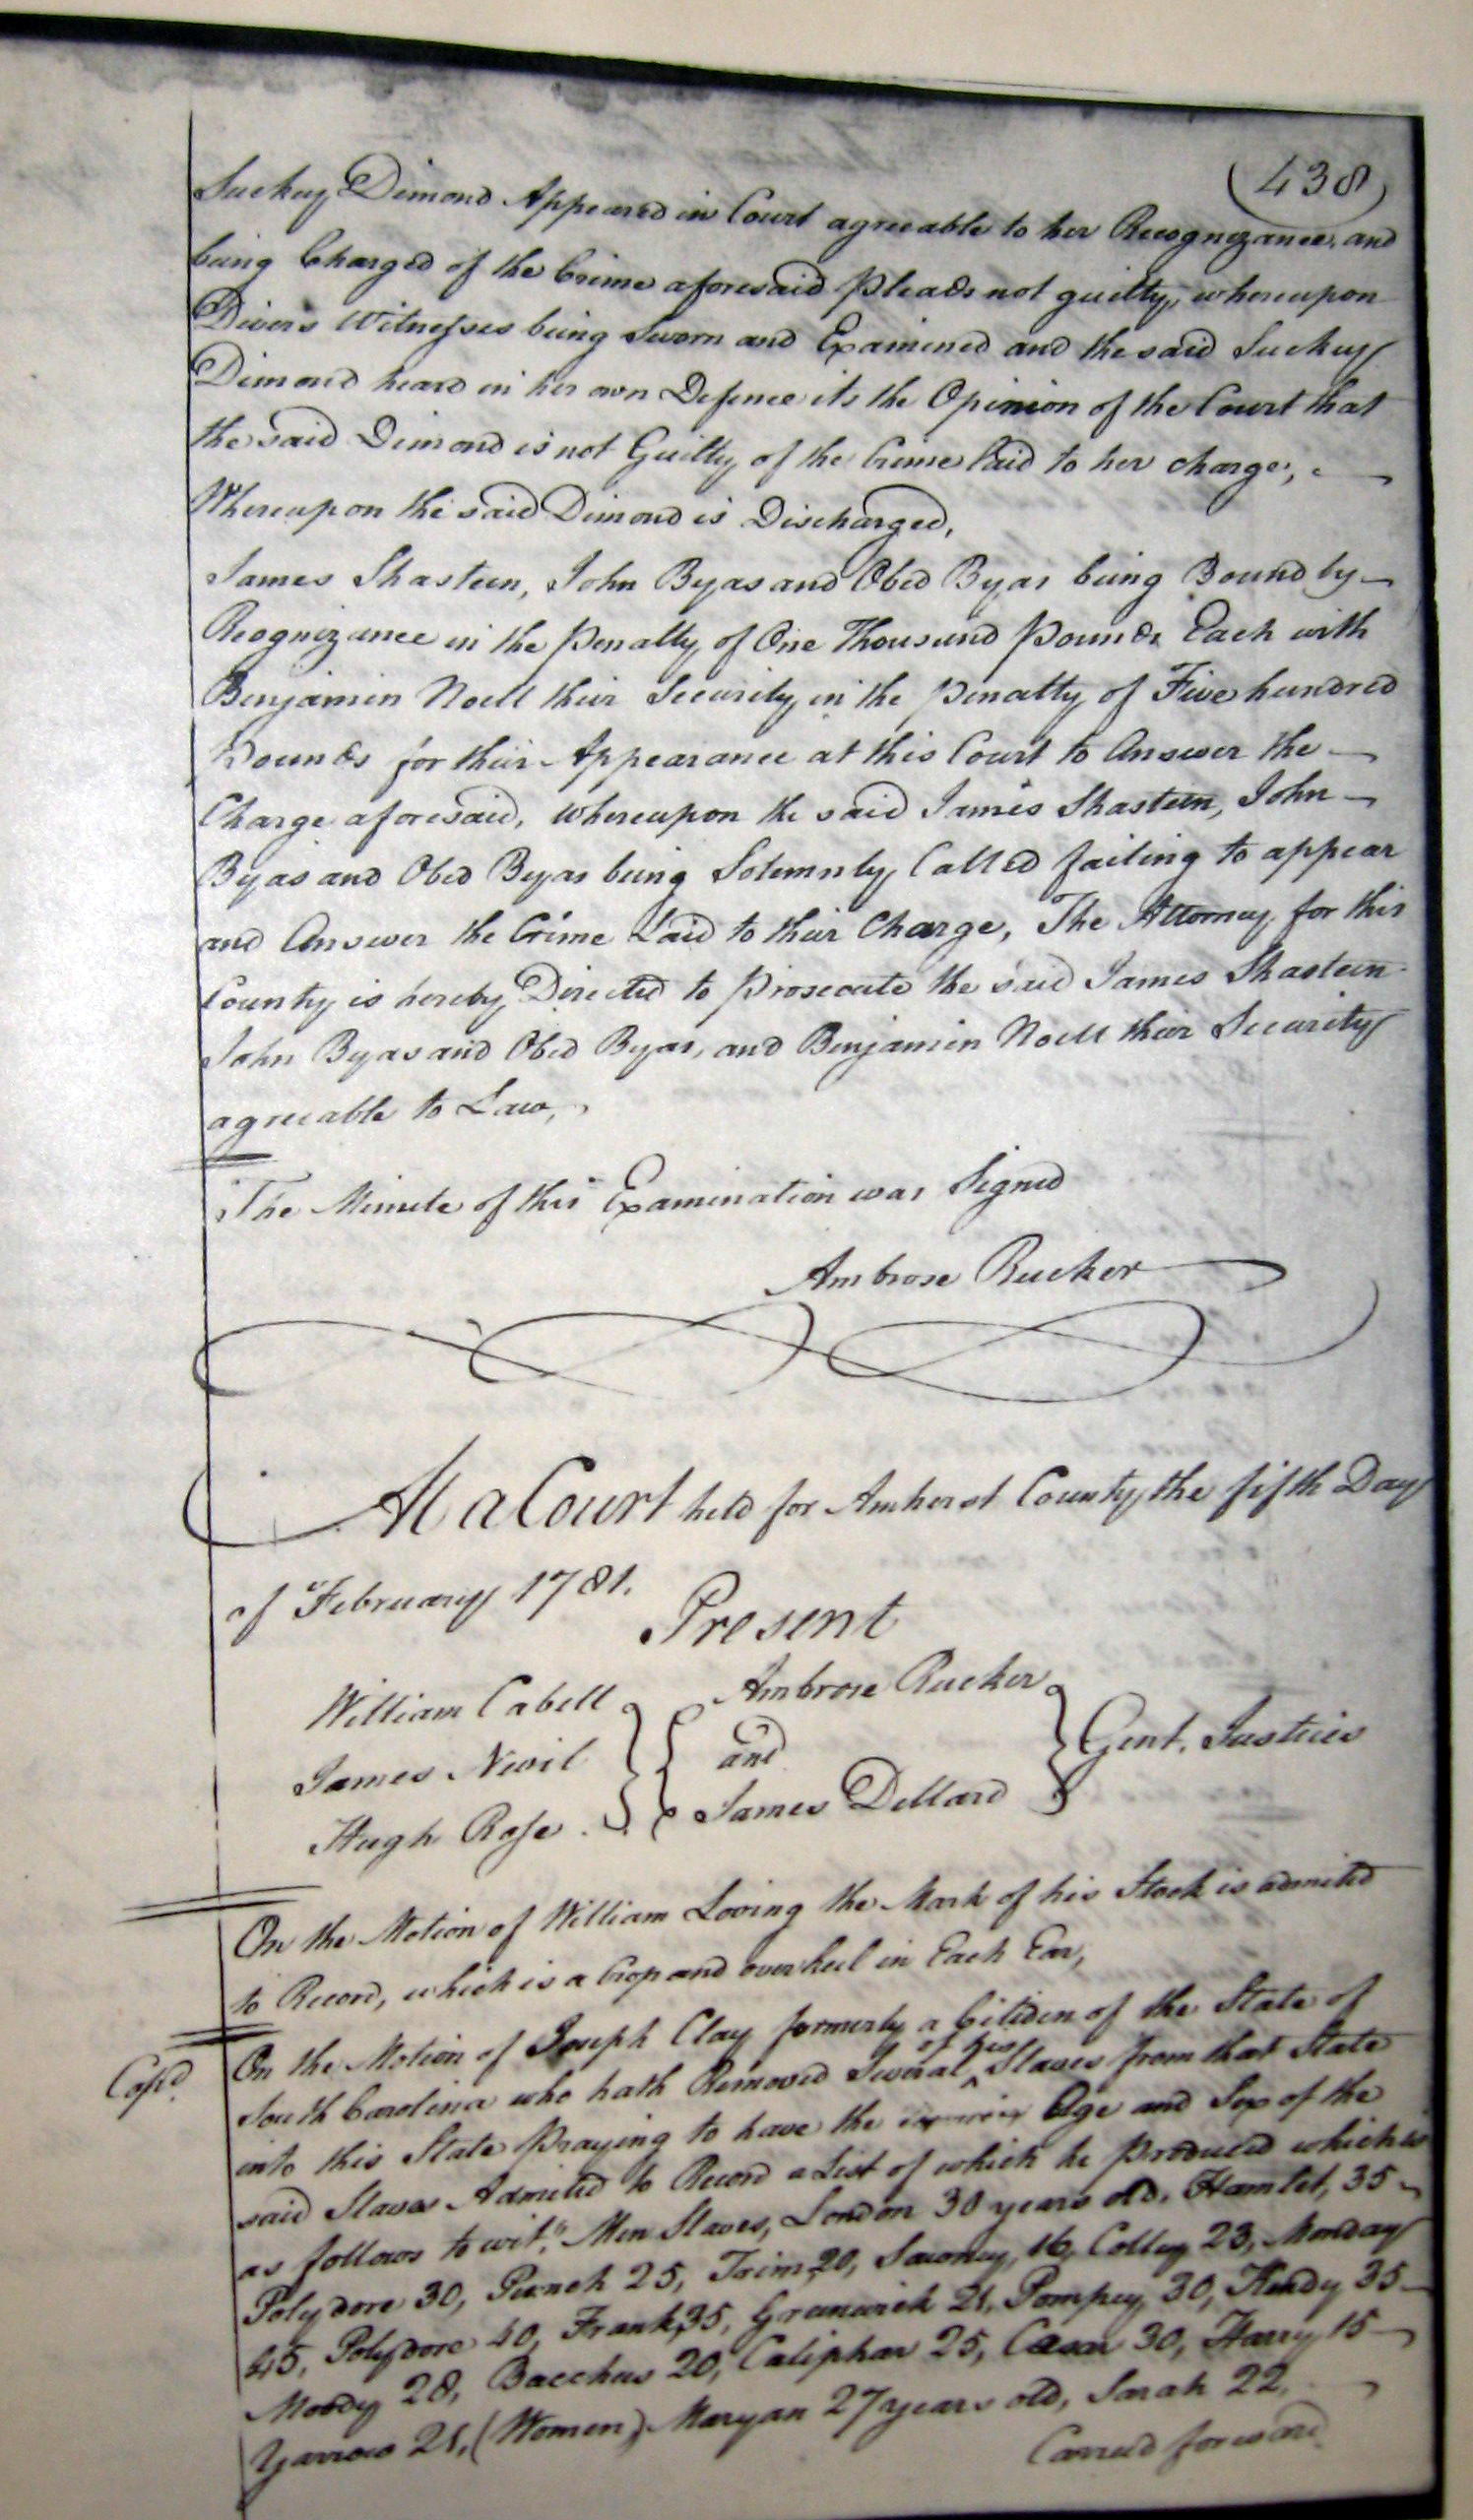 (438)
Suckey Dimond Appeared in Court agreeable to her Recognizance, and
being Charged of the Crime aforesaid pleads not guilty, whereupon
Divers Witnesses being Sworn and Examined and the said Suckey
Dimond heard in her own Defence its the Opinion of the Court that
the said Dimond is not Guilty of the Crime Laid to her charge,
Whereupon the said Dimond is Discharged,
James Shasteen, John Byas and Obed Byas being Bound by
Recognizance in the penalty of One Thousand pounds Each with
Benjamin Noell their Security in the penalty of Five hundred
Pounds for their Appearance at this Court to Answer the
Charge aforesaid, whereupon the said James Shasteen, John
Byas and Obed Byas being Solemnly Called failing to appear
and Answer the Crime Laid to their Charge, The Attorney for this
County is hereby Directed to prosecute the said James Shasteen
John Byas and Obed Byas, and Benjamin Noell their Security
agreeable to Law,
The Minute of this Examination was Signed
Ambrose Rucker
At a Court held for Amherst County the fifth Day
of February 1781.
Present
William Cabell Ambrose Rucker
James Nevil and Gent. Justices
Hugh Rose James Dillard
On the Motion of William Loving the Mark of his Stock is admited
to Record, which is a Crop and over keel in Each Ear,
Cop'd. On the Motion of Joseph Clay formerly a Citiden of the State of
South Carolina who hath Removed Several of his Slaves from that State
into this State praying to have the Age and Sex of the
said Slaves Admited to Record a List of which he produced which is
as follows to wit. Men Slaves, London 30 years old. Hamlet, 35
Polydore 30, Punch 25, Trim 20, Sawney, 16, Colley 23, Monday
45, Polydore 40, Frank, 35, Greenwich 21, Pompey 30, Handy 35
Moody 28, Bacchus 20, Caliphar 25, Cæsar 30, Harry 15
Yarrow 21, (Women) Maryan 27 years old, Sarah 22,
Carried forward